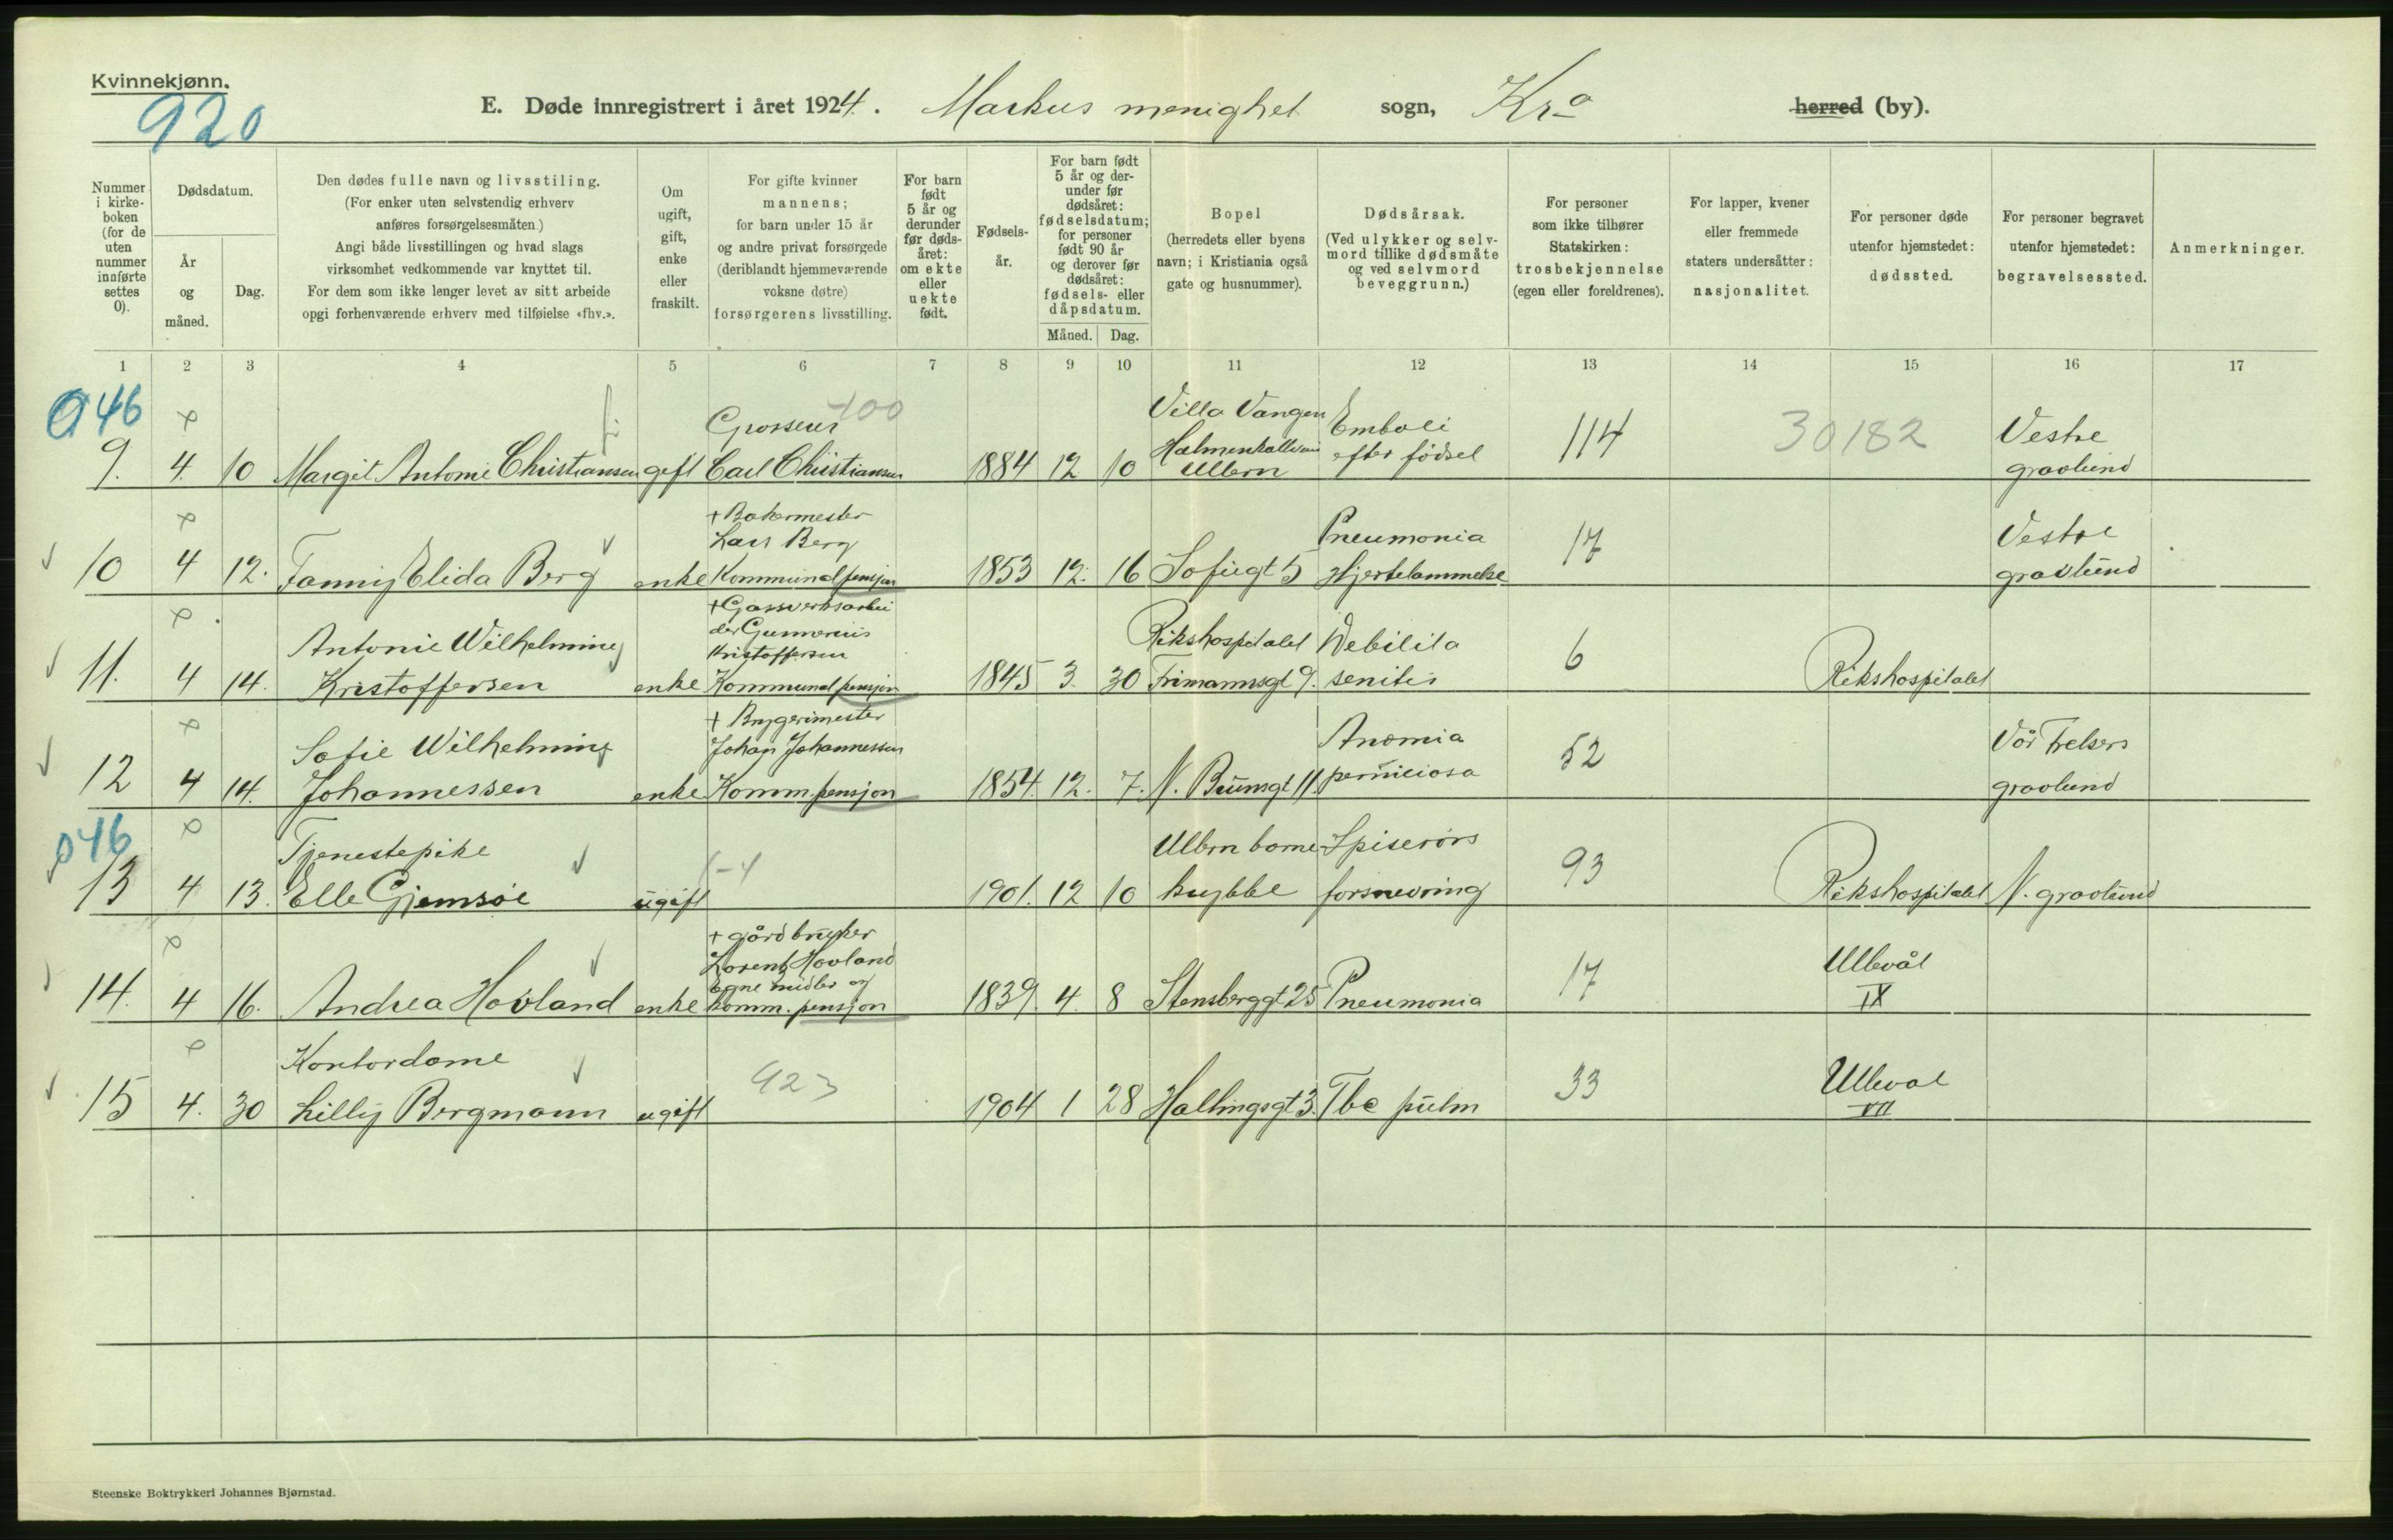 Kvinnekjønn.
920
E. Døde innregistrert i året 1924. Markus menighet sogn, Kra herred (by).
Nummer i kirke-boken (for de uten nummer innførte settes 0).
Dødsdatum.
År og måned.
Dag.
Den dødes fulle navn og livsstiling.
(For enker uten selvstendig erhverv
anføres forsørgelsesmåten.)
Angi både livsstillingen og hvad slags
virksomhet vedkommende var knyttet til.
For dem som ikke lenger levet av sitt arbeide
opgi forhenværende erhverv med tilføielse «fhv.».
Om ugift, gift, enke eller fraskilt.
For gifte kvinner
mannens;
for barn under 15 år
og andre privat forsørgede
(deriblandt hjemmeværende
voksne døtre)
forsørgerens livsstilling.
For barn født 5 år og derunder før døds-året: om ekte eller uekte født.
Fødsels-år.
For barn født 5 år og der-under før dødsåret: fødselsdatum; for personer født 90 år og derover før dødsåret: fødsels- eller dåpsdatum.
Måned. Dag.
Bopel
(herredets eller byens
navn; i Kristiania også
gate og husnummer).
Dødsårsak.
(Ved ulykker og selv-
mord tillike dødsmåte
og ved selvmord
beveggrunn.)
For personer
som ikke tilhører
Statskirken:
trosbekjennelse
(egen eller foreldrenes).
For lapper, kvener
eller fremmede
staters undersåtter:
nasjonalitet.
For personer døde
utenfor hjemstedet:
dødssted.
For personer begravet
utenfor hjemstedet:
begravelsessted.
Anmerkninger.
1 2 3 4 5 6 7 8 9 10 11 12 13 14 15 16 17
046
Grosserer 400 Villa Vangen Emboli 114 30182 Vestre
9. 4. 10 Margit Antonie Christiansen gift Carl Christiansen 1884 12 10 Ullern efter fødsel gravlund
+ Bakermester
Lars Berg Pneumonia 17 Vestre
10 4 12. Fanny Elida Berg enke Kommunal pensjon 1853 12. 16 Sofiegt 5 Hjertelammelse gravlund
+ Gassverksarbei
der Gunnerius
Antonie Wilhelmine Kristoffersen Rikshospitalet Debilita 6
11. 4 14. Kristoffersen enke Kommunal pensjon 1845 3. 30 Frimannsgt 9. senilis Rikshospitalet
+ Bryggerimester
Sofie Wilhelmine Johan Johannessen Anæmia 52 Vår Frelsers
12 4 14. Johannessen enke Komm. pensjon 1854. 12. 7. N. Bruunsgt 11. perniciosa gravlund
046
Tjenestepike Ullern barne Spiserørs 93
13 4 13. Elle Gjemsøe ugift 1901. 12 10 krybbe forsnevring Rikshospitalet N. gravlund
+ gårdbruker
Lorents Hovland
Egne midler og 17 Ullevål
14. 4 16. Andrea Hovland enke komm. pensjon 1839. 4. 8 Stensberggt 25 Pneumonia IX
Kontordame 923 33 Ullevål
15 4. 30 Lilly Bergmann ugift 1904 1 28 Hallingsgt 3. Tbc pulm VII
Steenske Boktrykkeri Johannes Bjørnstad.